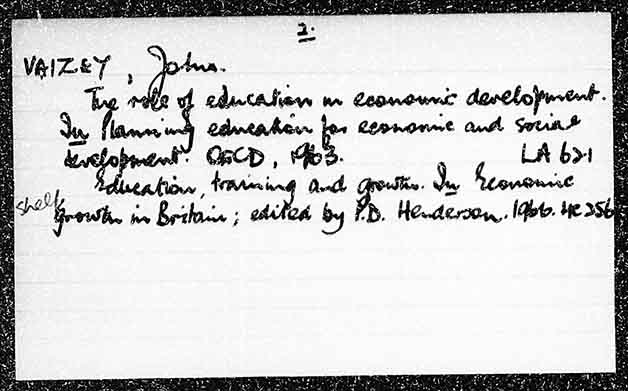 2.
VAIZEY, John.
The role of education in economic development.
In Planning education for economic and social
development. OECD, 1963. LA 621
Education, training and growth. In Economic
shelf growth in Britain; edited by P.D. Henderson. 1966. HC 256